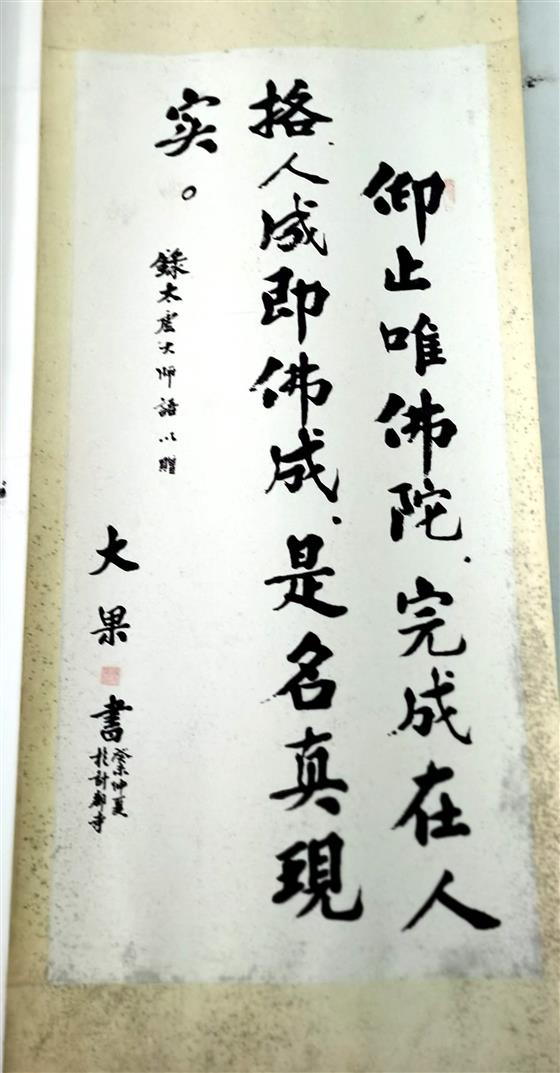 仰止唯佛陀、完成在人
挌、人成即佛成、是名真現
实。
錄太虛大师語以贈
大果
書
癸未仲夏
於討都寺